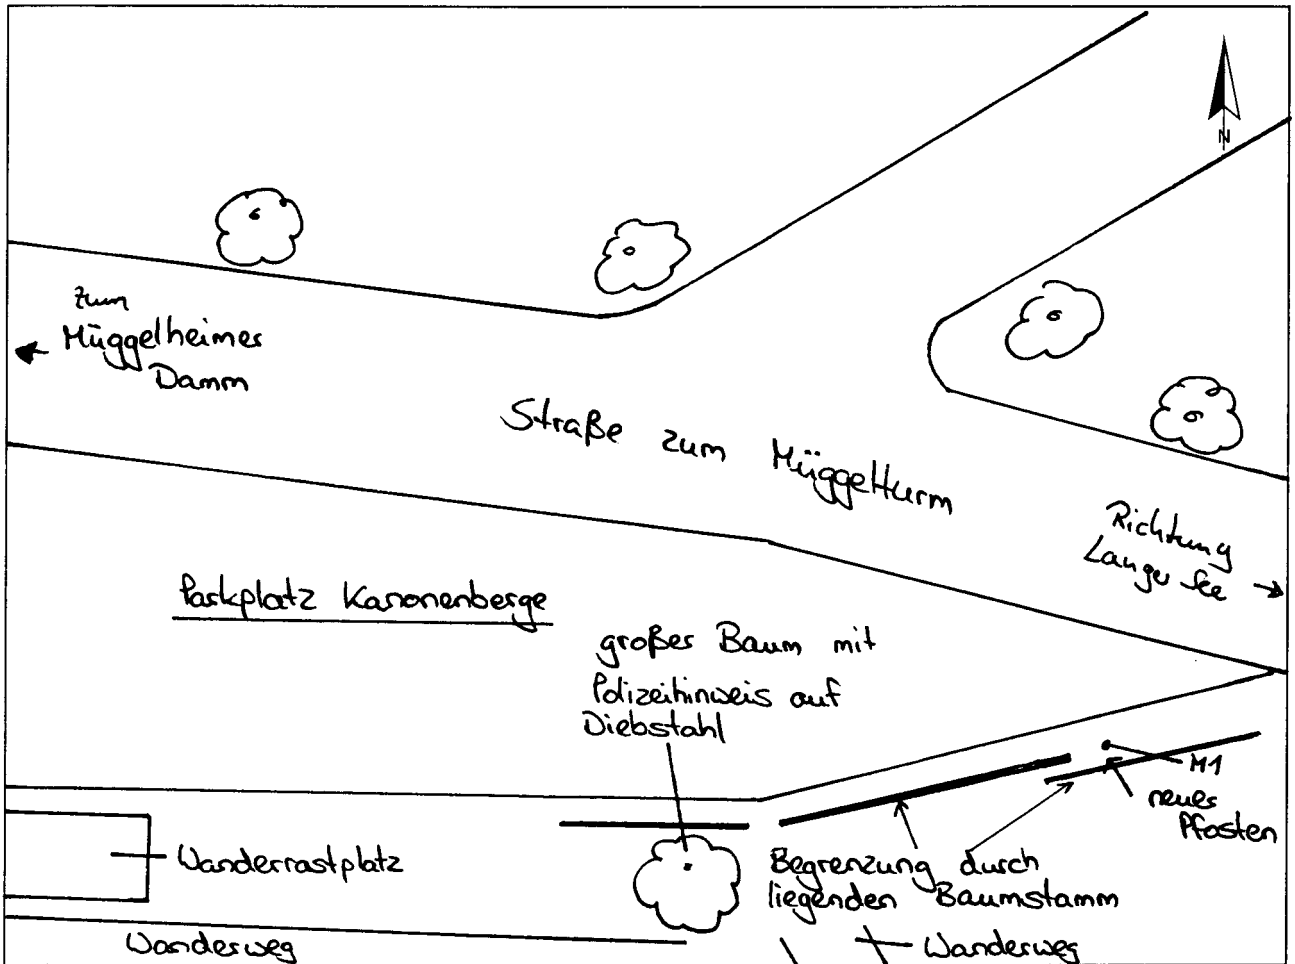 N
zum
Müggelheimer
Damm
Straße zum Müggelturm
Richtung
Langer See
Parkplatz Kanonenberge
großer Baum mit
Polizeihinweis auf
Diebstahl
M1
neuer
Pfosten
Wanderrastplatz
Begrenzung durch
liegenden Baumstamm
Wanderweg
Wanderweg